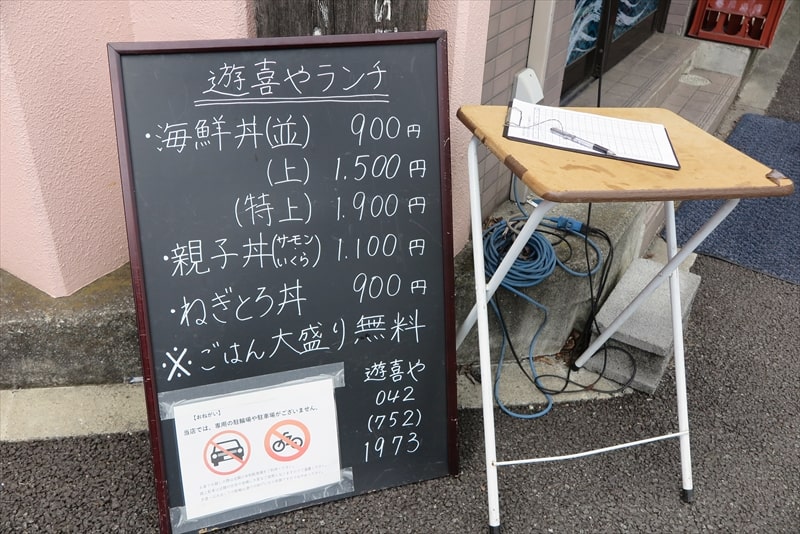 遊喜やランチ
・海鮮丼(並) 900円
(上) 1.500円
(特上) 1.900円
・親子丼(サーモンいくら) 1.100円
・ねぎとろ丼 900円
※ごはん大盛り無料
遊喜や
042
(752)
1973
【おねがい】
当店では、専用の駐輪場や駐車場がございません。